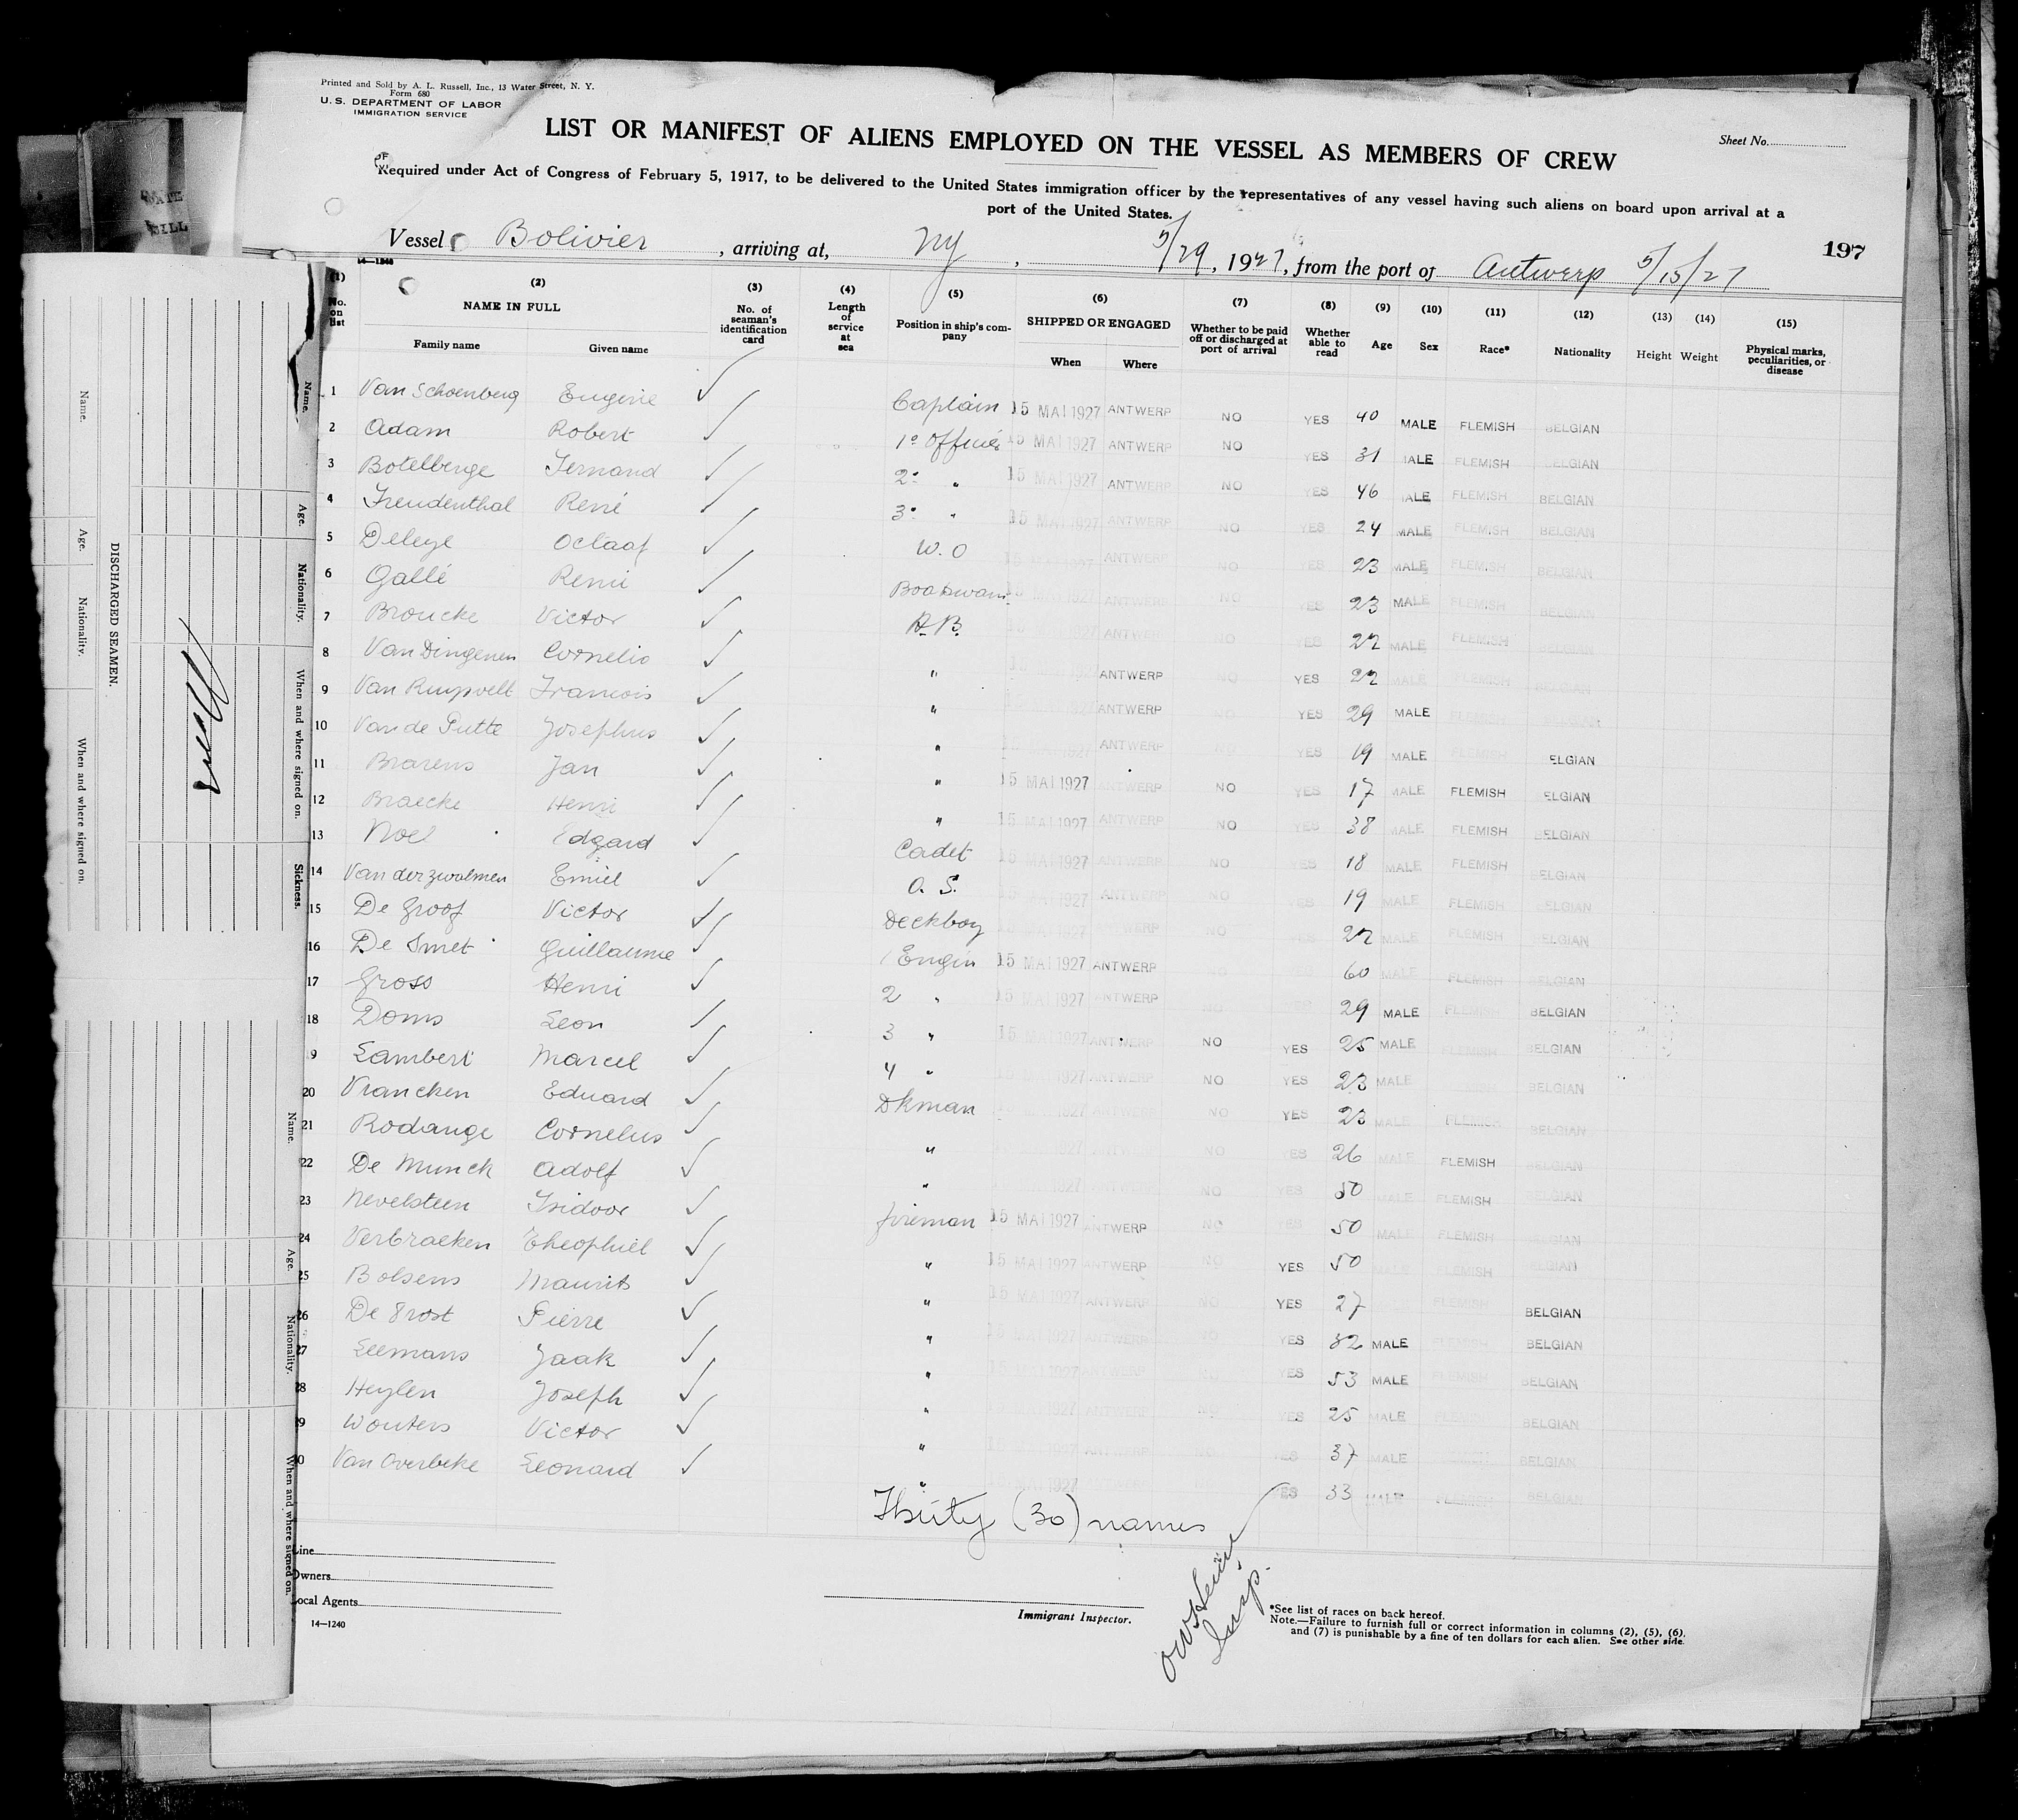 Printed and Sold by A. L. Russell, Inc., 13 Water Street, N. Y.
Form 680
U. S. DEPARTMENT OF LABOR
IMMIGRATION SERVICE
LIST OR MANIFEST OF ALIENS EMPLOYED ON THE VESSEL AS MEMBERS OF CREW
Sheet No.
Required under Act of Congress of February 5, 1917, to be delivered to the United States immigration officer by the representatives of any vessel having such aliens on board upon arrival at a
port of the United States.
Vessel Bolivier, arriving at, NY, 5/29, 1927, from the port of Antwerp 5/15/27
197
14—1240
(1) No. on list (2) NAME IN FULL Family name Given name (3) No. of seaman's identification card (4) Length of service at sea (5) Position in ship's company (6) SHIPPED OR ENGAGED When Where (7) Whether to be paid off or discharged at port of arrival (8) Whether able to read (9) Age (10) Sex (11) Race* (12) Nationality (13) Height (14) Weight (15) Physical marks, peculiarities, or disease
1 Van Schoenberg Eugene Captain 15 MAI 1927 ANTWERP NO YES 40 MALE FLEMISH BELGIAN
2 Adam Robert 1e Officer 15 MAI 1927 ANTWERP NO YES 31 MALE FLEMISH BELGIAN
3 Botelberge Fernand 2e " 15 MAI 1927 ANTWERP NO YES 46 MALE FLEMISH BELGIAN
4 Freudenthal René 3e " 15 MAI 1927 ANTWERP NO YES 24 MALE FLEMISH BELGIAN
5 Deleye Oclaaf W.O 15 MAI 1927 ANTWERP NO YES 23 MALE FLEMISH BELGIAN
6 Gallé Remi Boatswain 15 MAI 1927 ANTWERP NO YES 23 MALE FLEMISH BELGIAN
7 Broucke Victor A.B. 15 1927 ANTWERP NO YES 22 MALE FLEMISH BELGIAN
8 Van Dingenen Cornelis " 15 ANTWERP NO YES 22 MALE FLEMISH BELGIAN
9 Van Ruypvelt Francois " ANTWERP NO YES 29 MALE FLEMISH BELGIAN
10 Van de Putte Josephus " 15 1927 ANTWERP NO YES 19 MALE FLEMISH BELGIAN
11 Brarens Jan " 15 MAI 1927 ANTWERP NO YES 17 MALE FLEMISH BELGIAN
12 Braecke Henri " 15 MAI 1927 ANTWERP NO YES 38 MALE FLEMISH BELGIAN
13 Noel Edgard Cadet 15 MAI 1927 ANTWERP NO YES 18 MALE FLEMISH BELGIAN
14 Van der Zwalmen Emiel O. S. 15 MAI 1927 ANTWERP NO YES 19 MALE FLEMISH BELGIAN
15 De Groof Victor Deckboy 15 MAI 1927 ANTWERP NO YES 22 MALE FLEMISH BELGIAN
16 De Smet Guillaume 1 Engin 15 MAI 1927 ANTWERP NO 60 MALE FLEMISH BELGIAN
17 Gross Henri 2 " 15 MAI 1927 ANTWERP NO YES 29 MALE FLEMISH BELGIAN
18 Doms Leon 3 " 15 MAI 1927 ANTWERP NO YES 25 MALE FLEMISH BELGIAN
19 Lambert Marcel 4 " 15 MAI 1927 ANTWERP NO YES 23 MALE FLEMISH BELGIAN
20 Vrancken Eduard Dkman 1927 ANTWERP NO YES 23 MALE FLEMISH BELGIAN
21 Rodange Cornelus " 1927 ANTWERP NO YES 26 MALE FLEMISH BELGIAN
22 De Munck Adolf " 1927 ANTWERP NO YES 50 MALE FLEMISH BELGIAN
23 Nevelsteen Isidoor fireman 15 MAI 1927 ANTWERP NO YES 50 MALE FLEMISH BELGIAN
24 Verbraeken Theophiel " 15 MAI 1927 ANTWERP NO YES 50 FLEMISH BELGIAN
25 Bolsens Maurits " 15 MAI 1927 ANTWERP NO YES 27 FLEMISH BELGIAN
26 De Prost Pierre " 15 MAI 1927 ANTWERP NO YES 32 MALE FLEMISH BELGIAN
27 Leemans Jaak " 1927 ANTWERP NO YES 53 MALE FLEMISH BELGIAN
28 Heylen Joseph " 15 MAI 1927 ANTWERP NO YES 25 MALE FLEMISH BELGIAN
29 Wouters Victor " MAI 1927 ANTWERP NO YES 37 MALE FLEMISH BELGIAN
30 Van Overbeke Leonard " MAI 1927 ANTWERP YES 33 MALE FLEMISH BELGIAN
Thirty (30) names
Line
Owners
Local Agents
14—1240
Immigrant Inspector.
Insp.
*See list of races on back hereof.
Note.—Failure to furnish full or correct information in columns (2), (5), (6),
and (7) is punishable by a fine of ten dollars for each alien. See other side.
DISCHARGED SEAMEN.
Name. Age. Nationality. When and where signed on.
Name. Age. Nationality. When and where signed on. Sickness.
Name. Age. Nationality. When and where signed on.